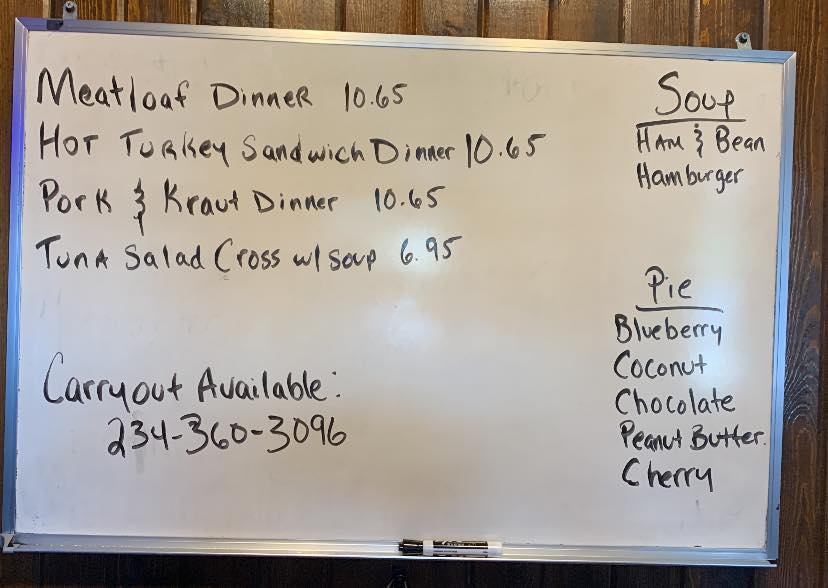 Meatloaf Dinner 10.65
Hot Turkey Sandwich Dinner 10.65
Pork & Kraut Dinner 10.65
Tuna Salad Cross w/ soup 6.95
Carryout Available:
234-360-3096
Soup
Ham & Bean
Hamburger
Pie
Blueberry
Coconut
Chocolate
Peanut Butter.
Cherry